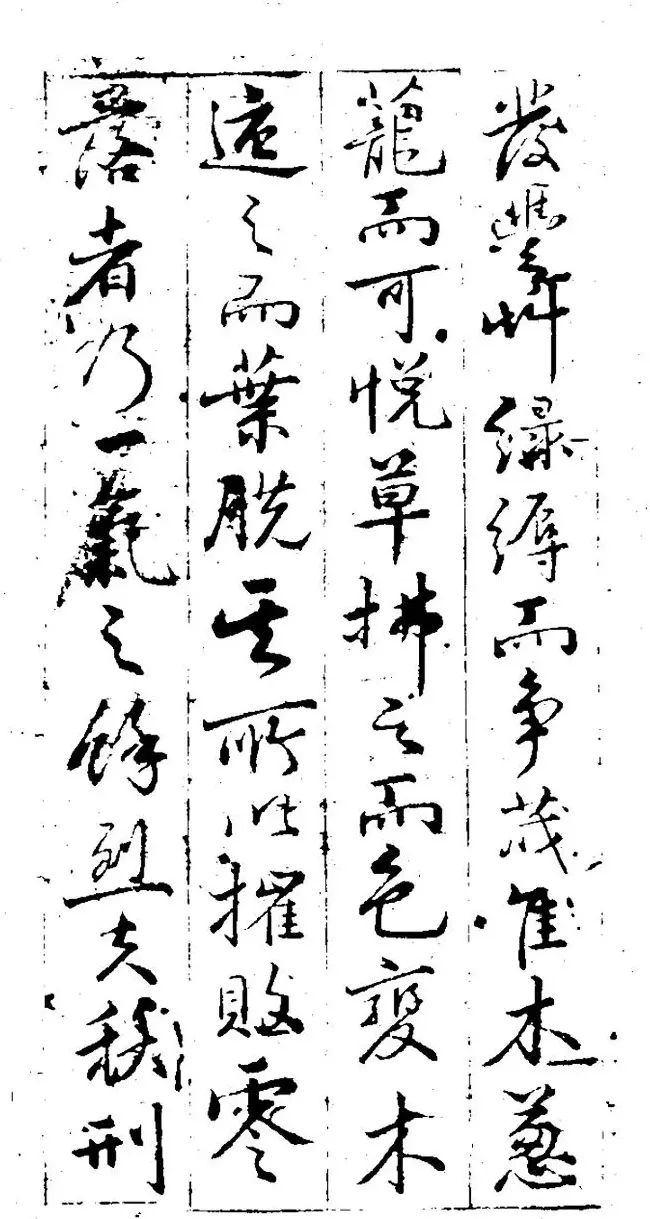 發豐艸綠縟而争茂佳木蔥
蘢而可悅草拂之而色變木
遭之而葉脫其所以摧敗零
落者乃一氣之餘烈夫秋刑